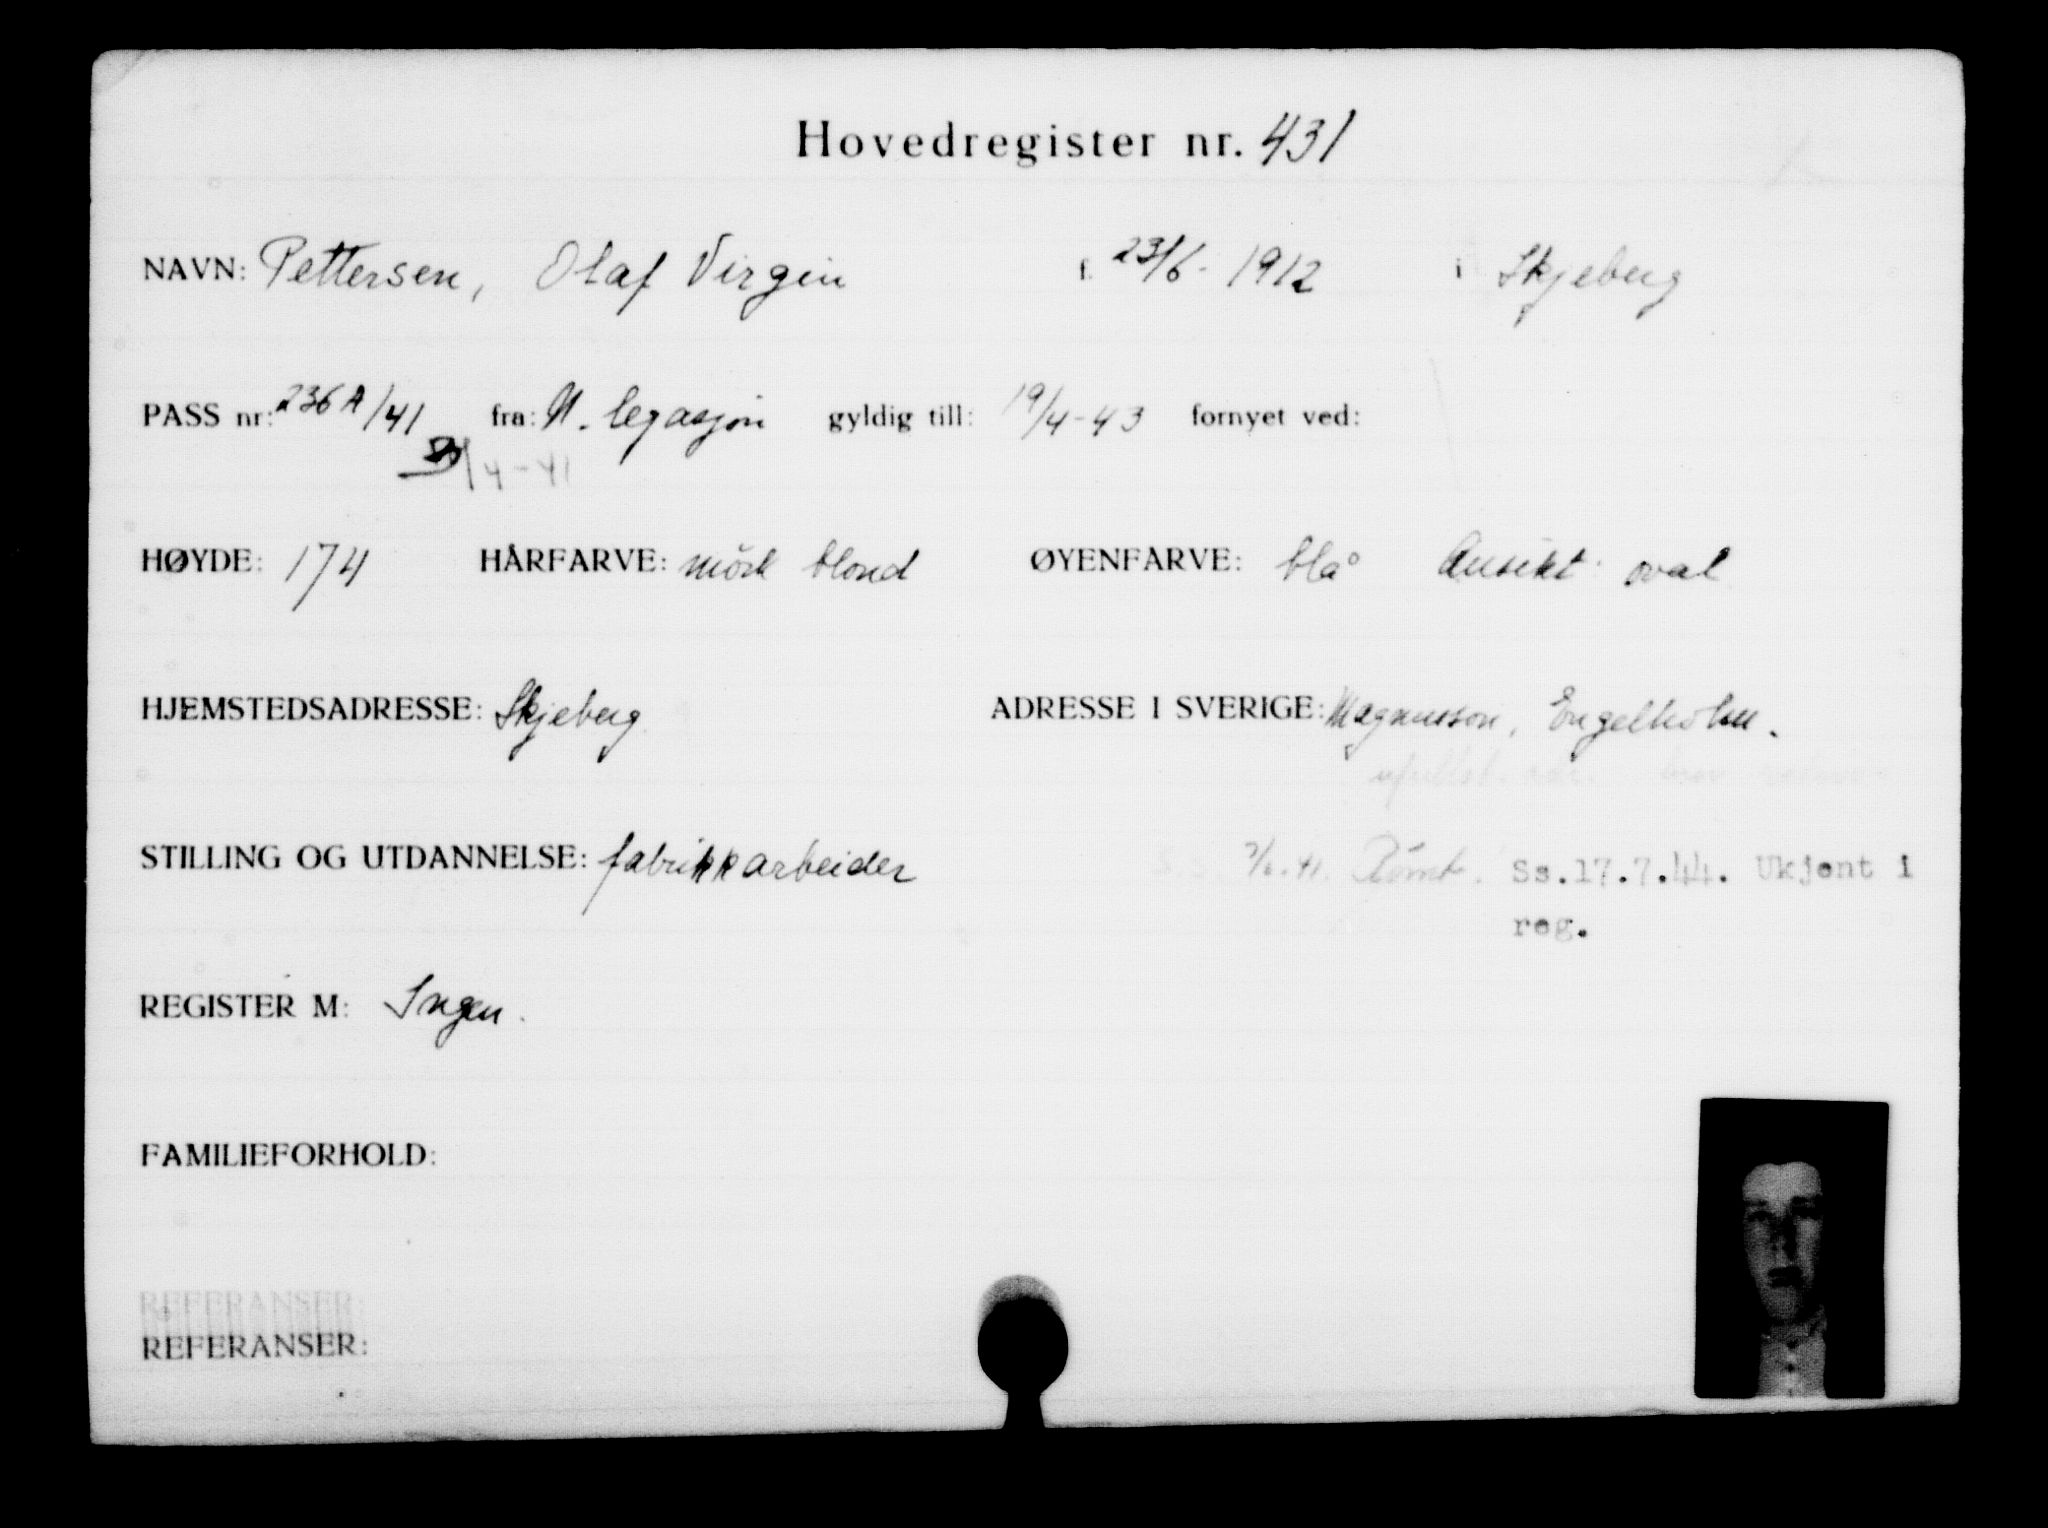 Hovedregister nr. 431
NAVN: Pettersen, Olaf Virgin f. 23/6-1912 i Skjeberg
PASS nr: 236A/41 fra: N. legasjon gyldig till: 19/4-43 fornyet ved:
/4-41
HØYDE: 174 HÅRFARVE: mörk blond ØYENFARVE: blå Ansikt: oval
HJEMSTEDSADRESSE: Skjeberg. ADRESSE I SVERIGE: Magnusson, Engelholm.
STILLING OG UTDANNELSE: fabrikkarbeider Rømt. Ss.17.7.44. Ukjent i
reg.
REGISTER M: Ingen.
FAMILIEFORHOLD:
REFERANSER:
REFERANSER: